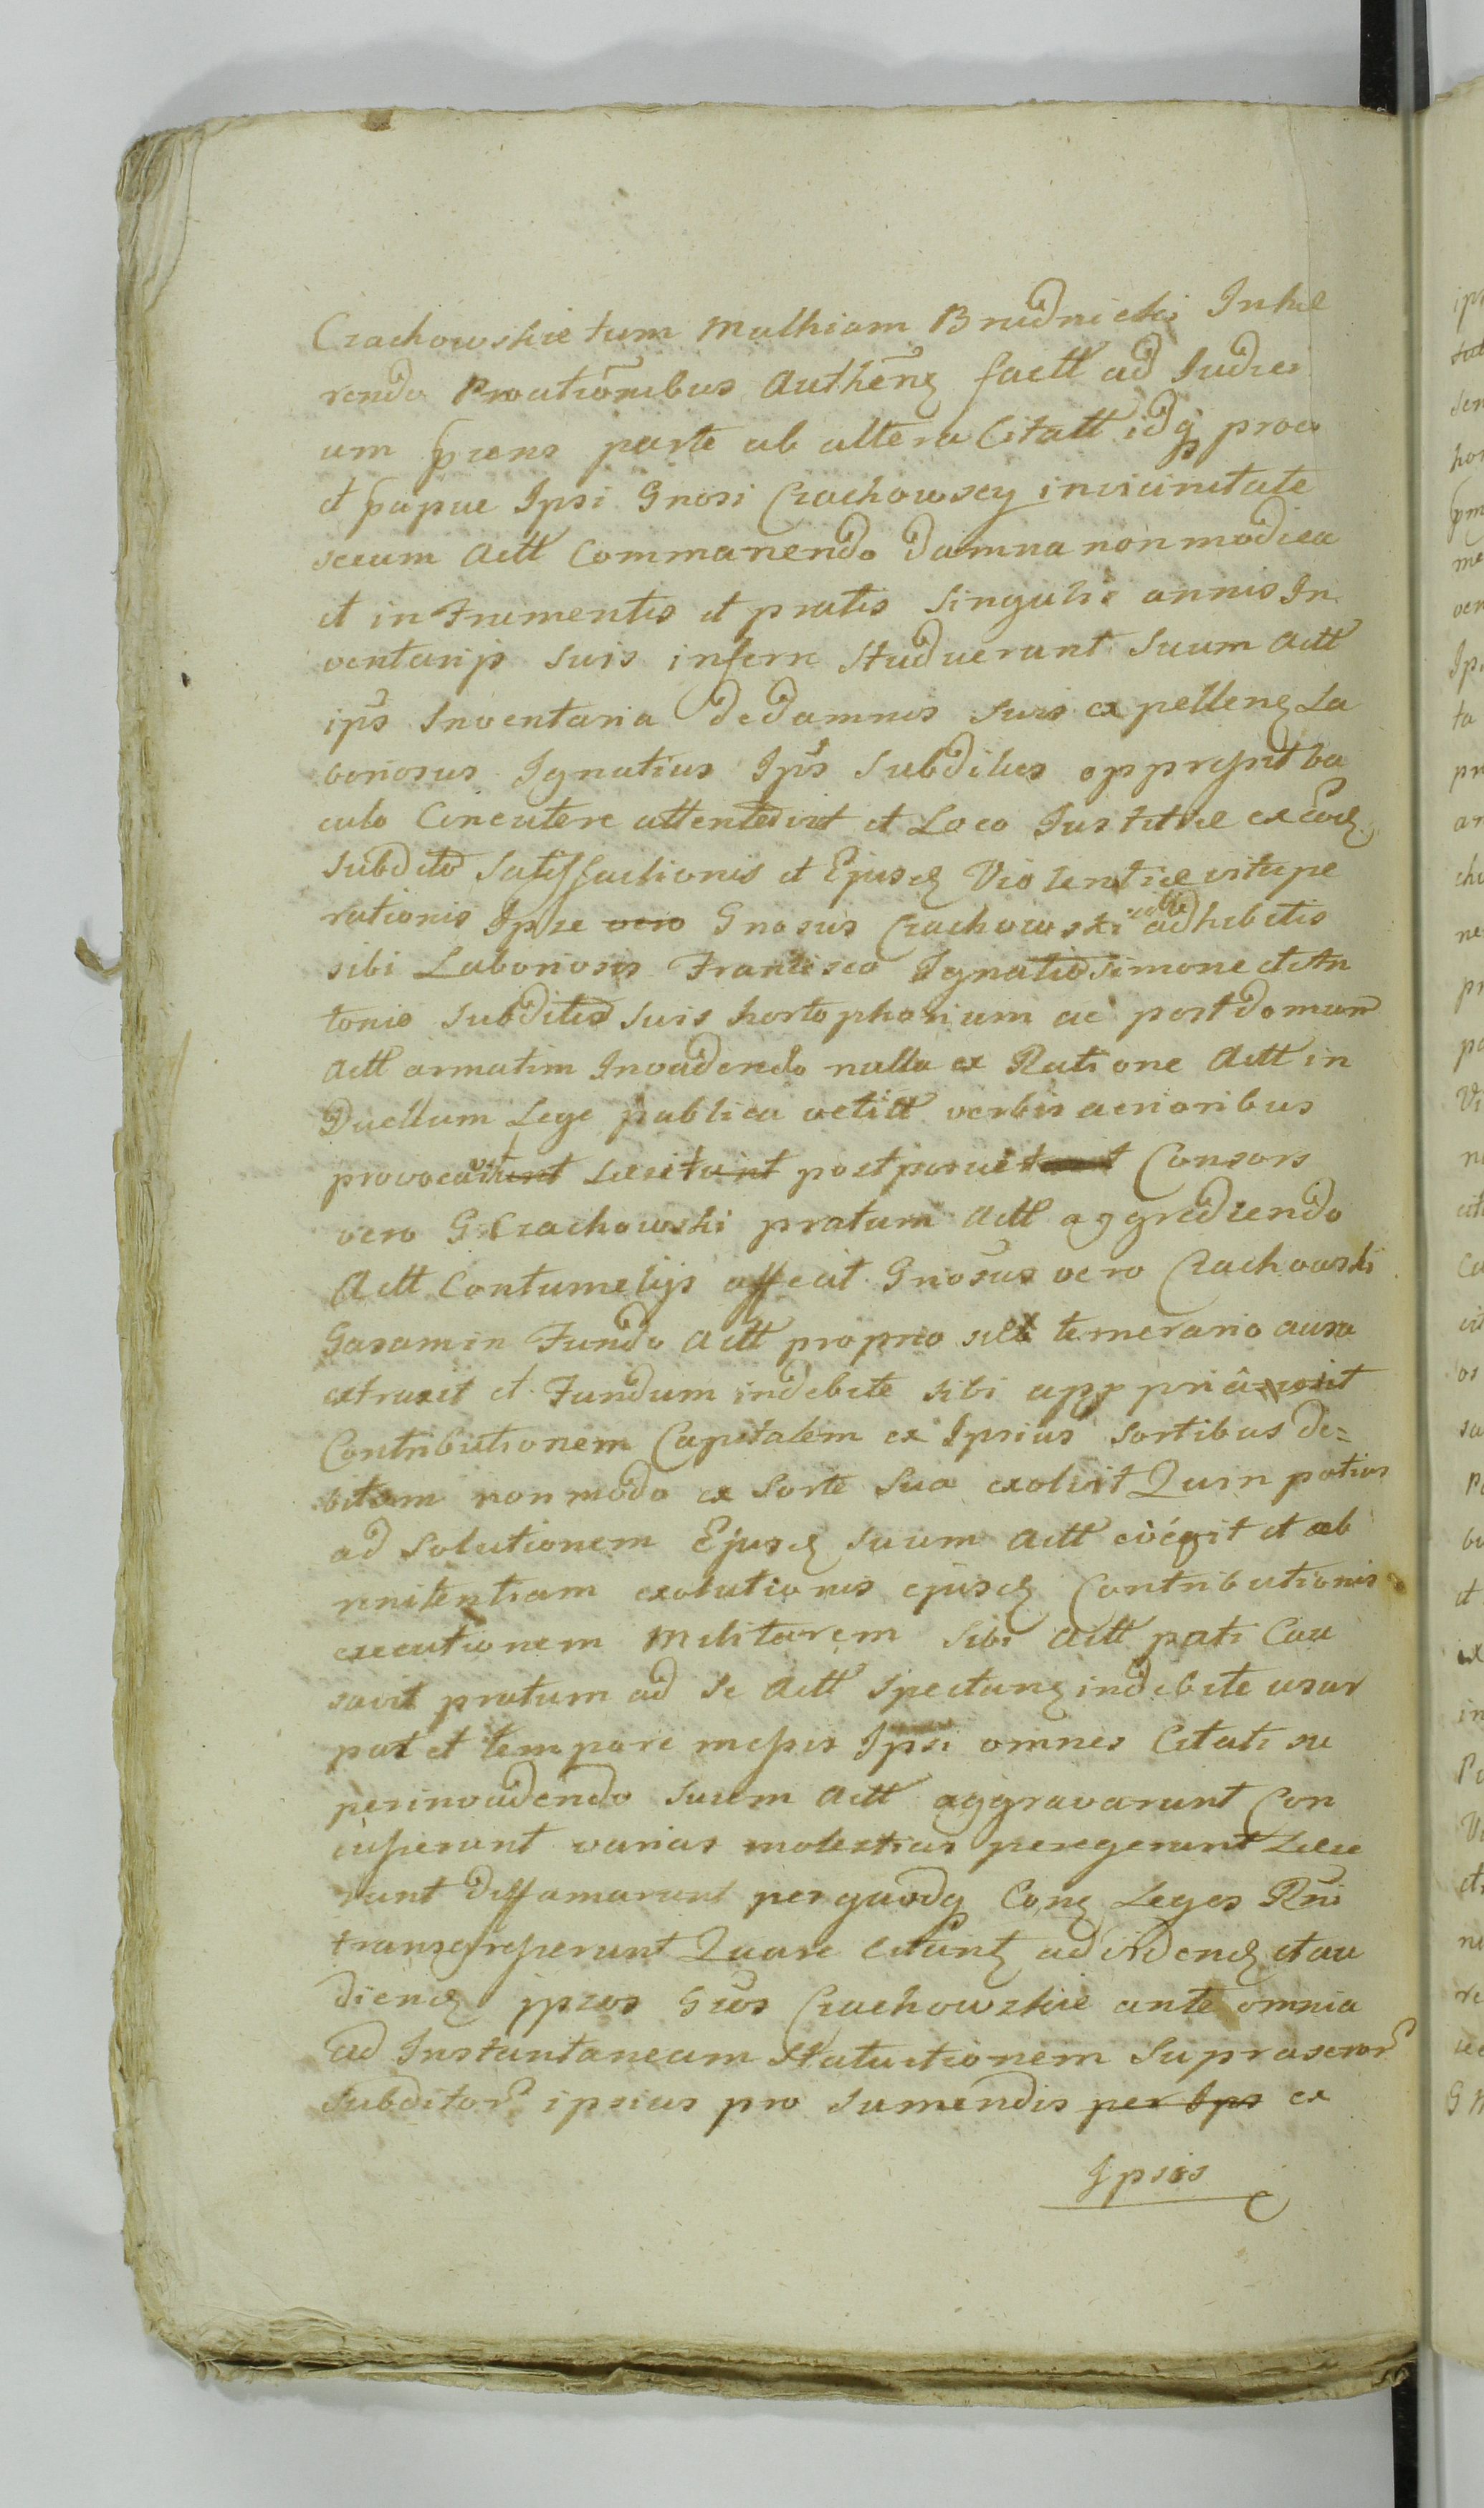 Crachowskie tum Mathiam Brudnicki Inhæ
rendo Proutiõnibus Authēnꝫ factt ad Judici
um pñens parte ab altera Citatt idq̃ proeo
et quia Ipsi Gnosi Crachowscy invicinitate
secum Actt Commanendo damna non modica
et in Frumentis et pratis singulis annis In
ventarijs suis inferre studuerunt suum Actt
ips Inventaria dedamnis suis expellenꝫ La
boriosus Ignatius Ips̃ subditus oppressit ba
culo Concutere attentavit et Loco Justitiæ ex eodꝫ
subdito satisfactionis et Ejusdꝫ Violentiæ vitupe
rationis Ipse vero Gnosus Crachowski adhibitis
sibi Laboriosis Francisco Ignatio Simone et An
tonio subditis suis hortophorium ac post domum
Actt armatim Invadendo nulla ex Ratione Actt in
Duellum Lege publica vetitt verbis acrioribus
provocavit Læsit postposuit Consors
vero G Crachowski pratum Actt aggrediendo
Actt Contumelijs affecit Gnosus vero Crachowski
Gazam in Fundo Actt proprio sitt temerario ausu
extraxit et Fundum indebite sibi appropriâvit
Contributionem Capitalem ex Ipsius sortibus de=
bitam non modo ex sorte sua exolvit Quin potius
ad solutionem Ejusdꝫ suum Actt coegit et ob
renitentiam exolutionis ejusdꝫ Contributionis
executionem Militarem sibi Actt pati Cau
savit pratum ad se Actt spectanꝫ indebite usur
pat et tempore messis Ipsi omnes Citati su
perinvadendo suum Actt aggravarunt Con
cusserunt varias molestias peregerunt Læse
runt diffamarunt per quodq Conꝫ Leges Rni
transgresserunt Quare Citantꝫ ad videndꝫ et au
diendꝫ ipsos Gsos Crachowskie ante omnia
ad Instantaneam Statuitionem Suprascror
subditor ipsius pro sumendis per Ips ex
Ipsis